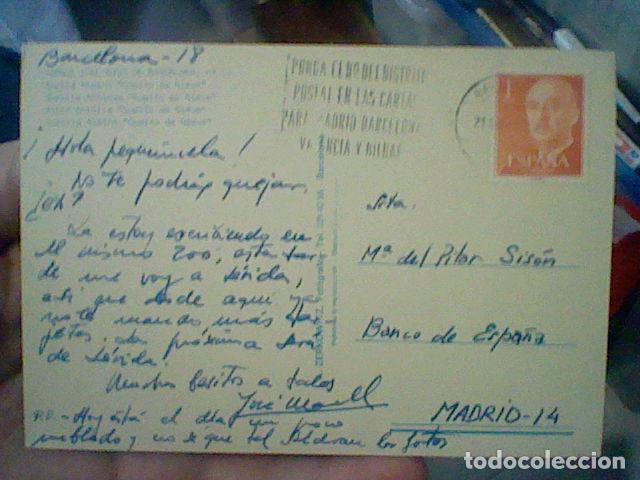 Barcelona - 18
"Copito de Nieve"
"Copito de Nieve"
"Copito de Nieve"
"Copito de Nieve"
PONGA EL Nº DEL DISTRITO
POSTAL EN LAS CARTAS
PARA MADRID BARCELONA
VALENCIA Y BILBAO
1
ESPAÑA
¡Hola pequeñuela!
No te podrás quejar,
¿eh?
La estoy escribiendo en
el mismo zoo, esta tar-
de me voy a Lérida,
así que desde aquí ya
no te mando más tar-
jetas. La próxima será
de Lérida.
Muchos besitos a todos
José Manuel
P.D. - Hoy está el día un poco
nublado y no sé que tal saldrán las fotos
Srta.
Mª del Pilar Sisón
Banco de España
MADRID-14
todocoleccion.net